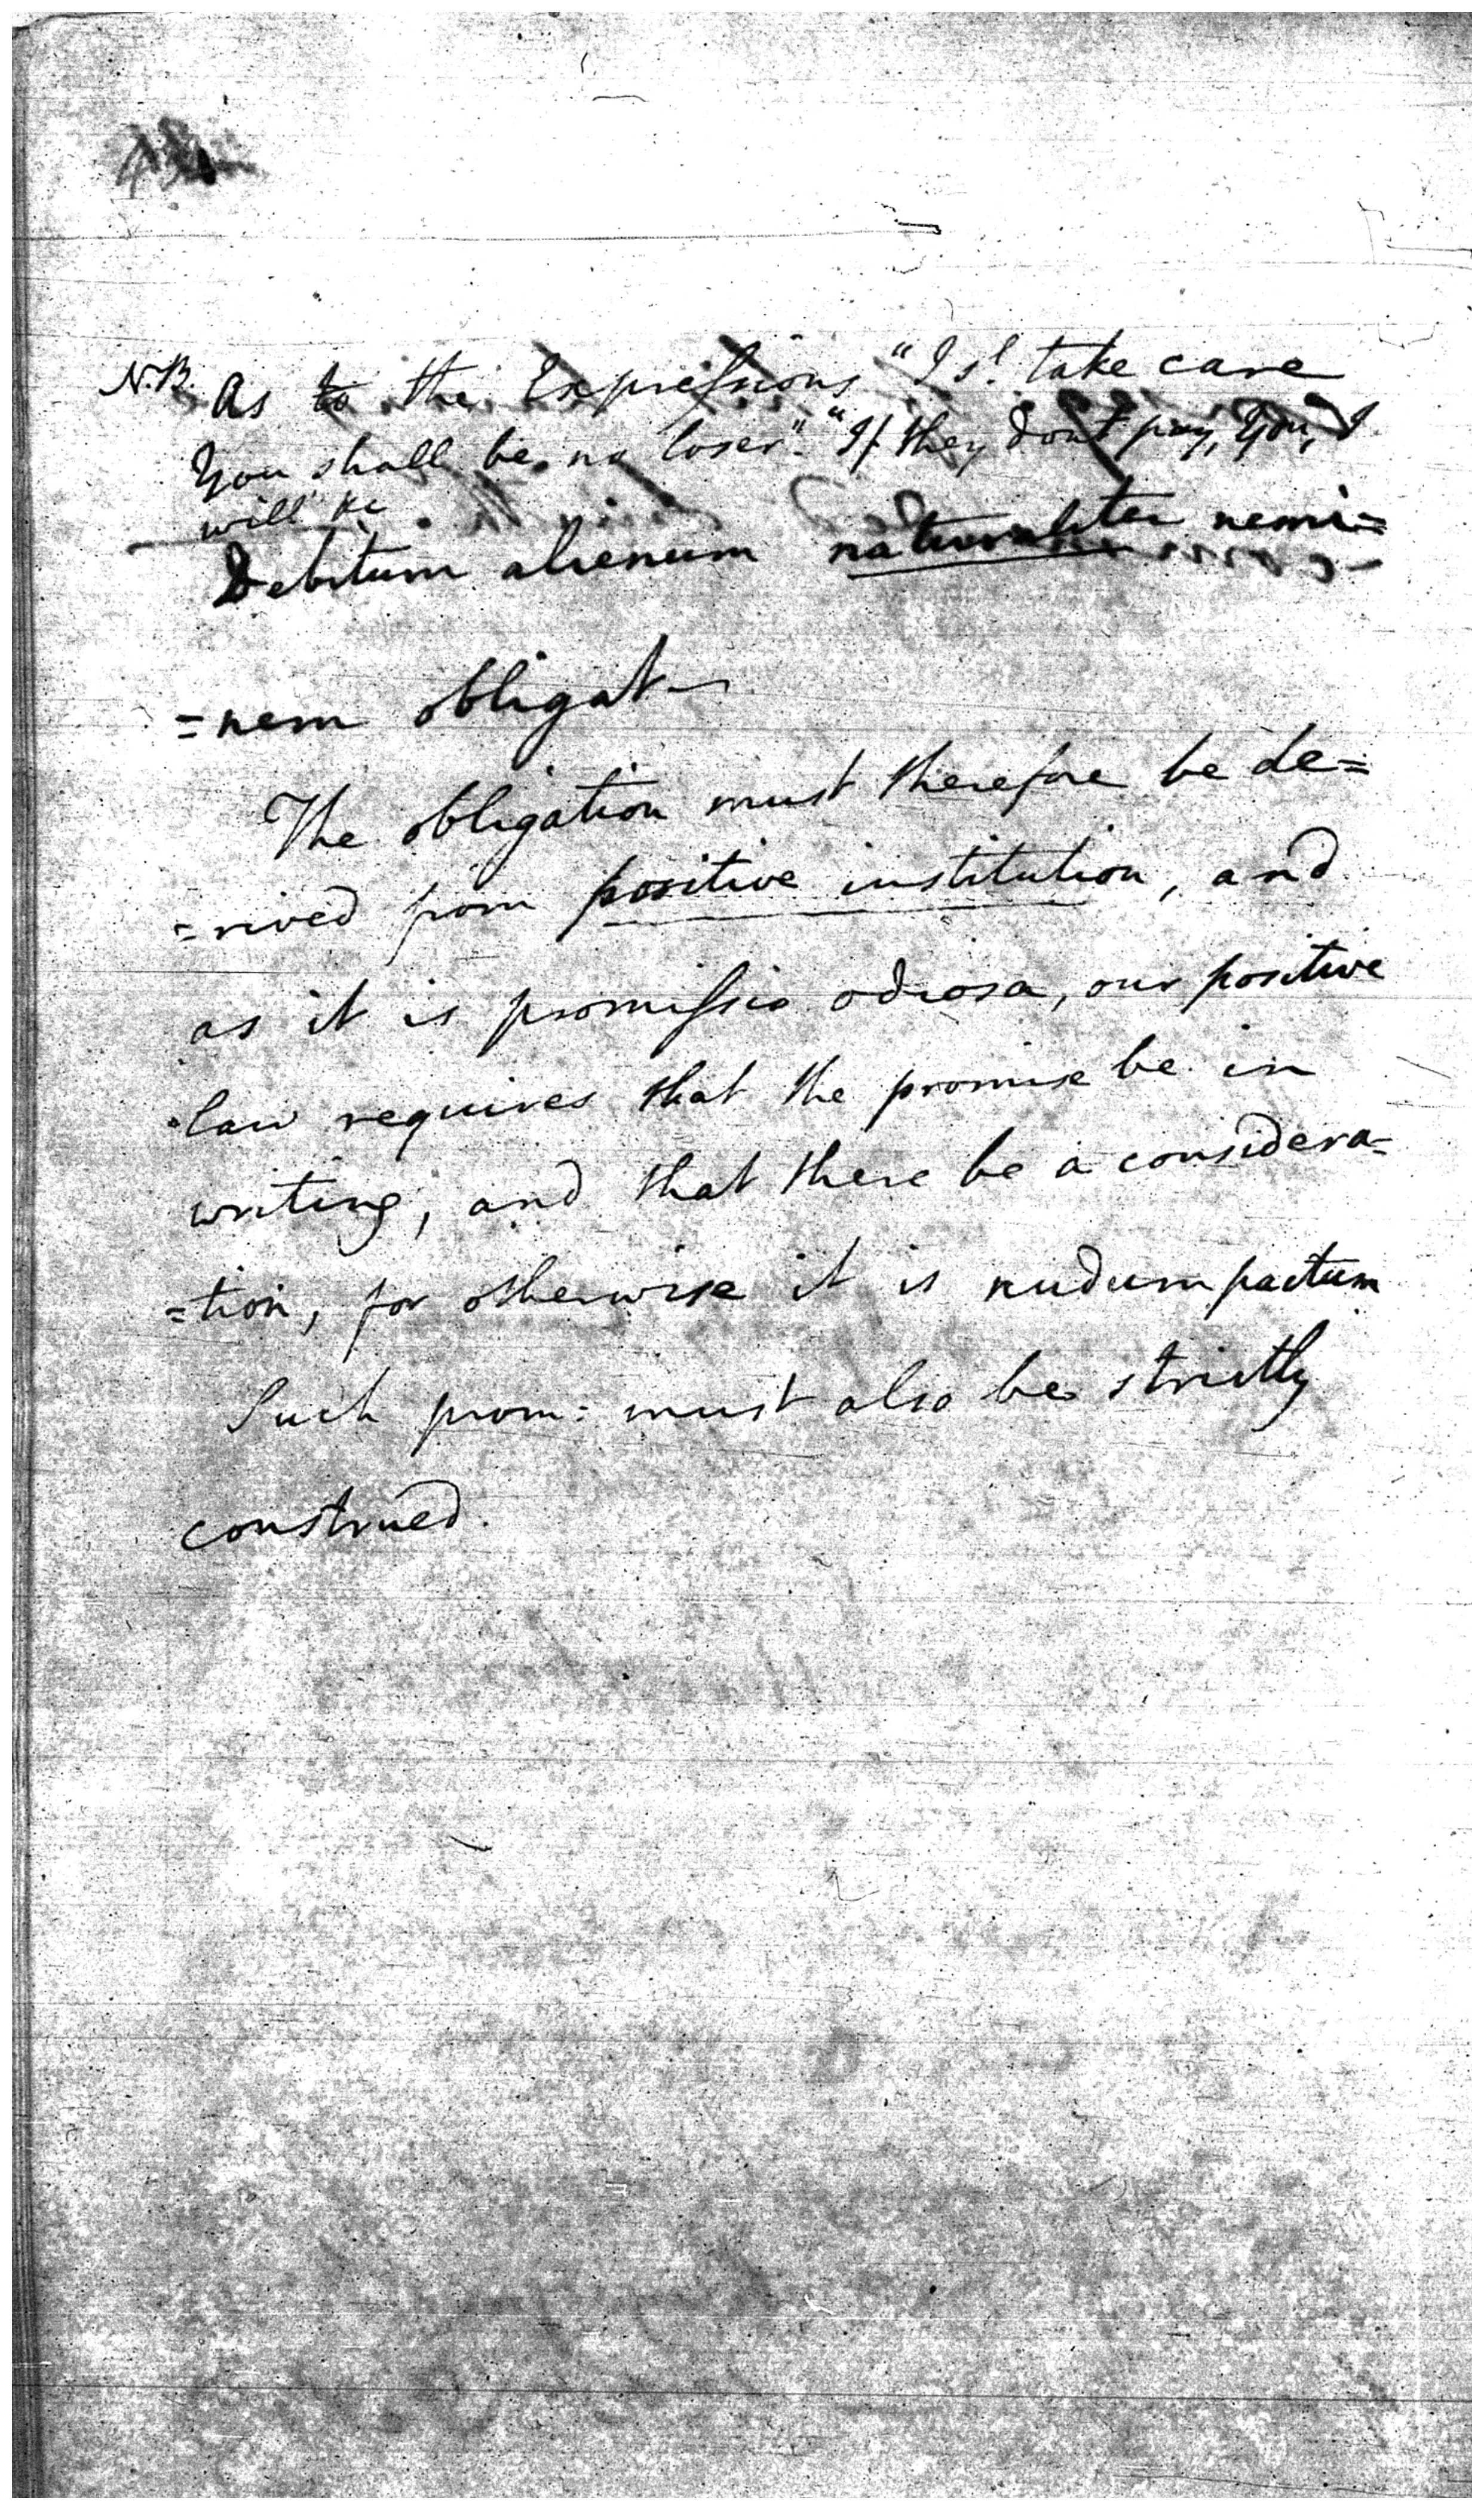 N.B. As to the Expressions "I sl. take care
You shall be no loser". "If they dont pay, You, I
will &c
Debitum alienum naturaliter nemi=
=nem obligat
The obligation must therefore be de=
=rived from positive institution, and
as it is promissio odiosa, our positive
law requires that the promise be in
writing; and that there be a considera=
=tion, for otherwise it is nudum pactum
Such prom: must also be strictly
construed.